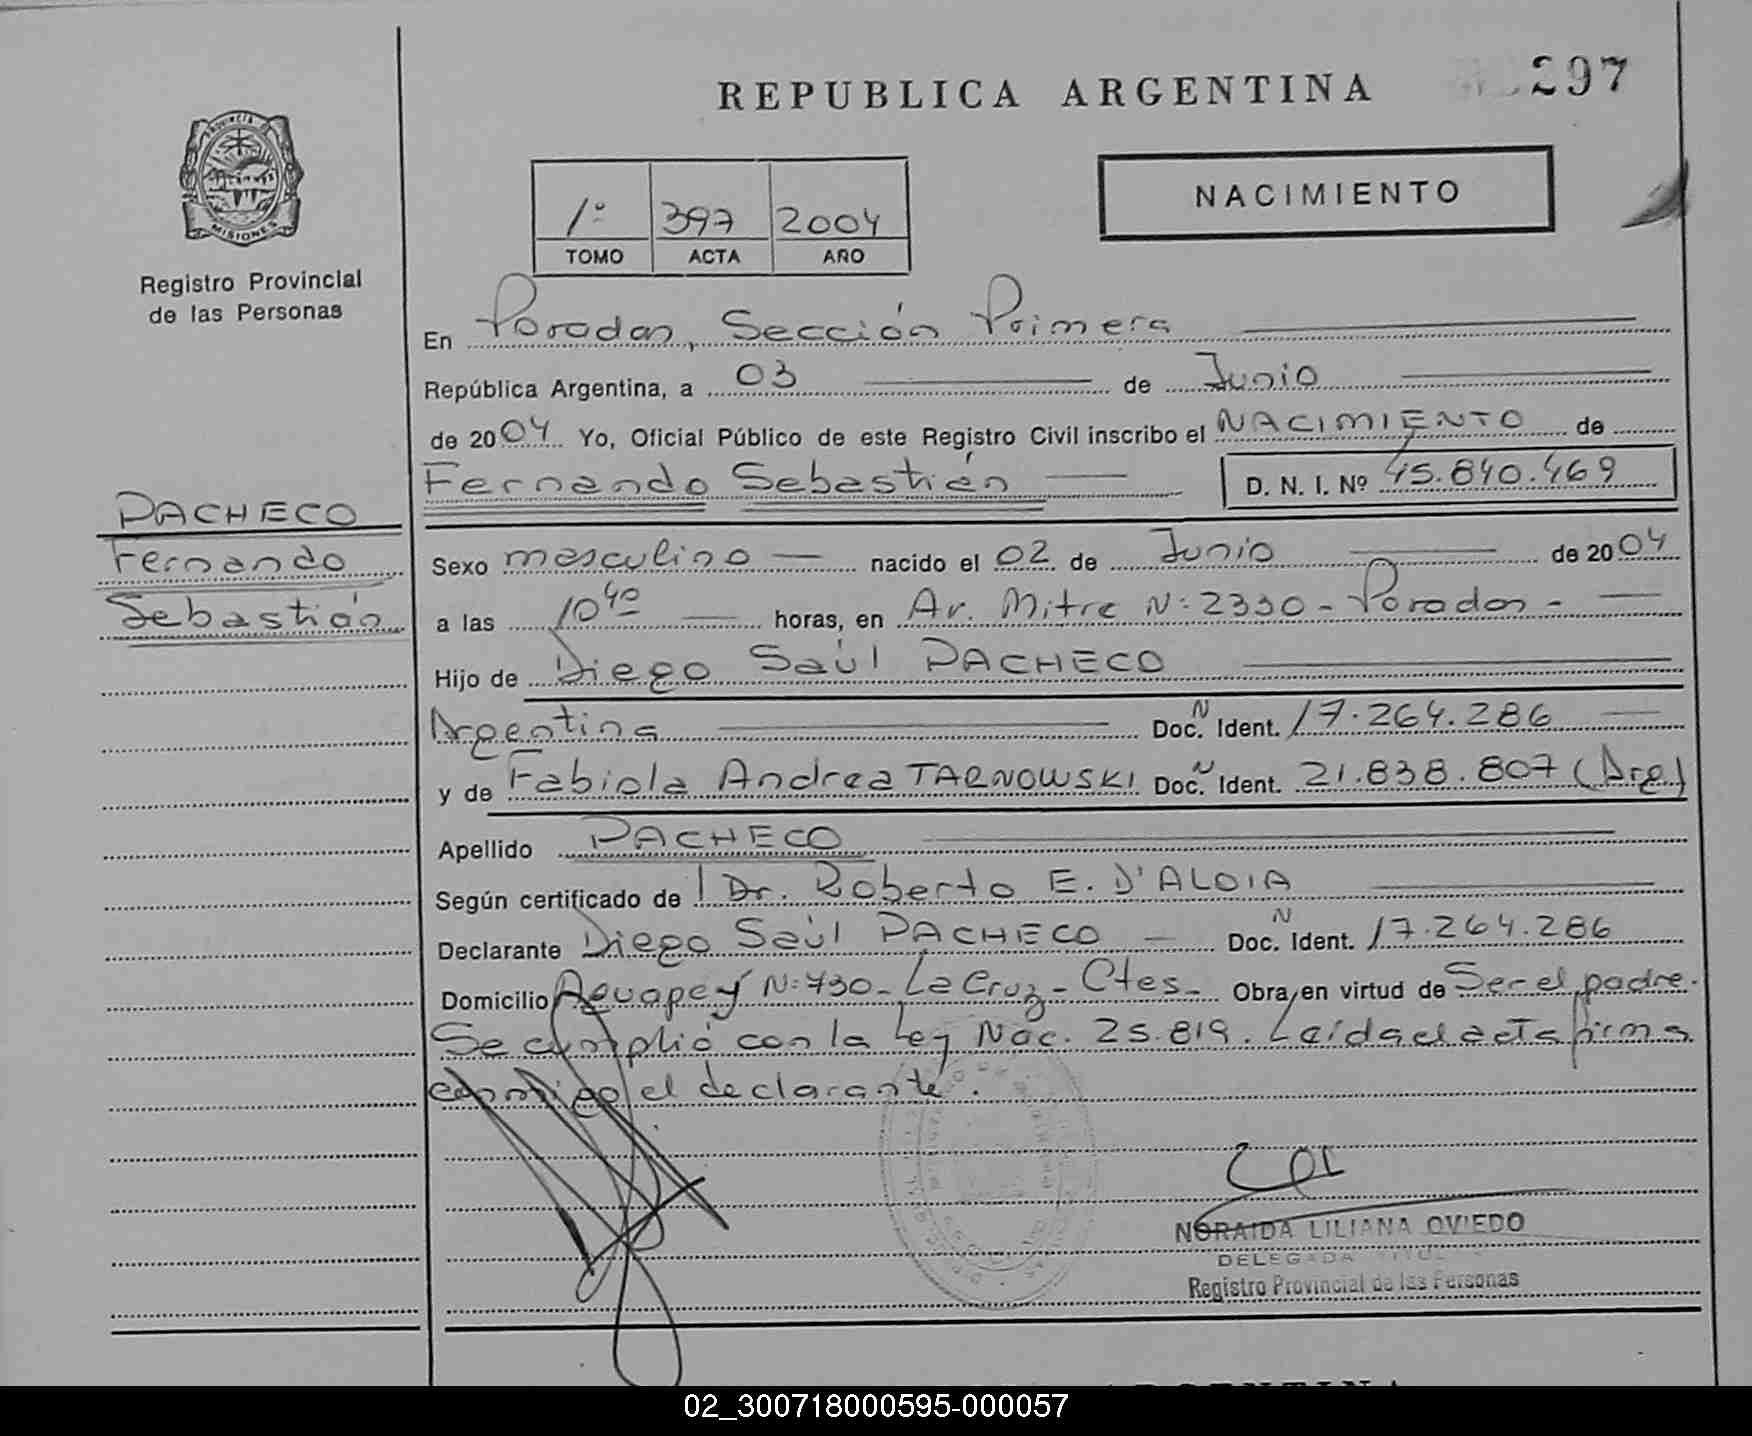 REPUBLICA ARGENTINA
297
PROVINCIA
MISIONES
Registro Provincial
de las Personas
NACIMIENTO
1º 397 2004
TOMO ACTA AÑO
En Posadas, Sección Primera
República Argentina, a 03 de Junio
de 2004 Yo, Oficial Público de este Registro Civil inscribo el NACIMIENTO de
Fernando Sebastián D. N. I. Nº 45.840.469
PACHECO
Fernando
Sebastián
Sexo masculino nacido el 02 de Junio de 2004
a las 10 40 horas, en Av. Mitre Nº 2330 - Posadas -
Hijo de Diego Saúl PACHECO
Argentina Doc. N Ident. 17.264.286
y de Fabiola Andrea TARNOWSKI Doc. N Ident. 21.838.807 (Arg)
Apellido PACHECO
Según certificado de Dr. Roberto E. D'ALOIA
Declarante Diego Saúl PACHECO - Doc. N Ident. 17.264.286
Domicilio Aguapey Nº 730 - La Cruz - Ctes - Obra, en virtud de Ser el padre.
Se cumplió con la Ley Nac. 25.819. Leída el acta firma
conmigo el declarante.
NORAIDA LILIANA OVIEDO
DELEGADA
Registro Provincial de las Personas
02_300718000595-000057